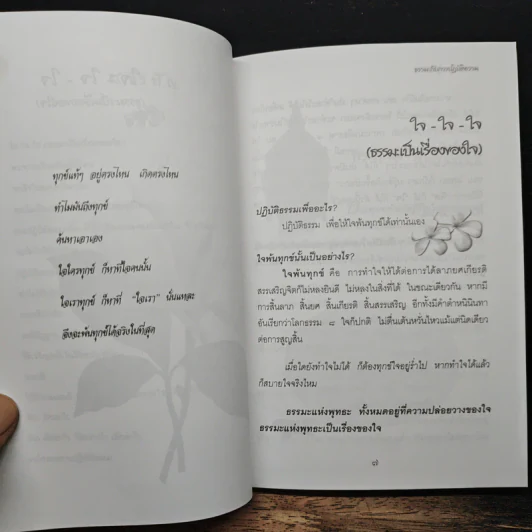 ทุกข์แท้ๆ อยู่ตรงไหน เกิดตรงไหน
ทำไมมันถึงทุกข์
ค้นหาเอาเอง
ใจใครทุกข์ ก็หาที่ใจคนนั้น
ใจเราทุกข์ ก็หาที่ "ใจเรา" นั่นแหละ
จึงจะพ้นทุกข์ได้จริงในที่สุด
ใจ - ใจ - ใจ
(ธรรมะเป็นเรื่องของใจ)
ปฏิบัติธรรมเพื่ออะไร?
ปฏิบัติธรรม เพื่อให้ใจพ้นทุกข์ได้เท่านั้นเอง
ใจพ้นทุกข์นั้นเป็นอย่างไร?
ใจพ้นทุกข์ คือ การทำใจให้ได้ต่อการได้ลาภยศเกียรติ
สรรเสริญจิตก็ไม่หลงยินดี ไม่หลงในสิ่งที่ได้ ในขณะเดียวกัน หากมี
การสิ้นลาภ สิ้นยศ สิ้นเกียรติ สิ้นสรรเสริญ อีกทั้งมีคำตำหนินินทา
อันเรียกว่าโลกธรรม ๘ ใจก็ปกติ ไม่ตื่นเต้นหวั่นไหวแม้แต่นิดเดียว
ต่อการสูญสิ้น
เมื่อใดยังทำใจไม่ได้ ก็ต้องทุกข์ใจอยู่ร่ำไป หากทำใจได้แล้ว
ก็สบายใจจริงไหม
ธรรมะแห่งพุทธะ ทั้งหมดอยู่ที่ความปล่อยวางของใจ
ธรรมะแห่งพุทธะเป็นเรื่องของใจ
๗